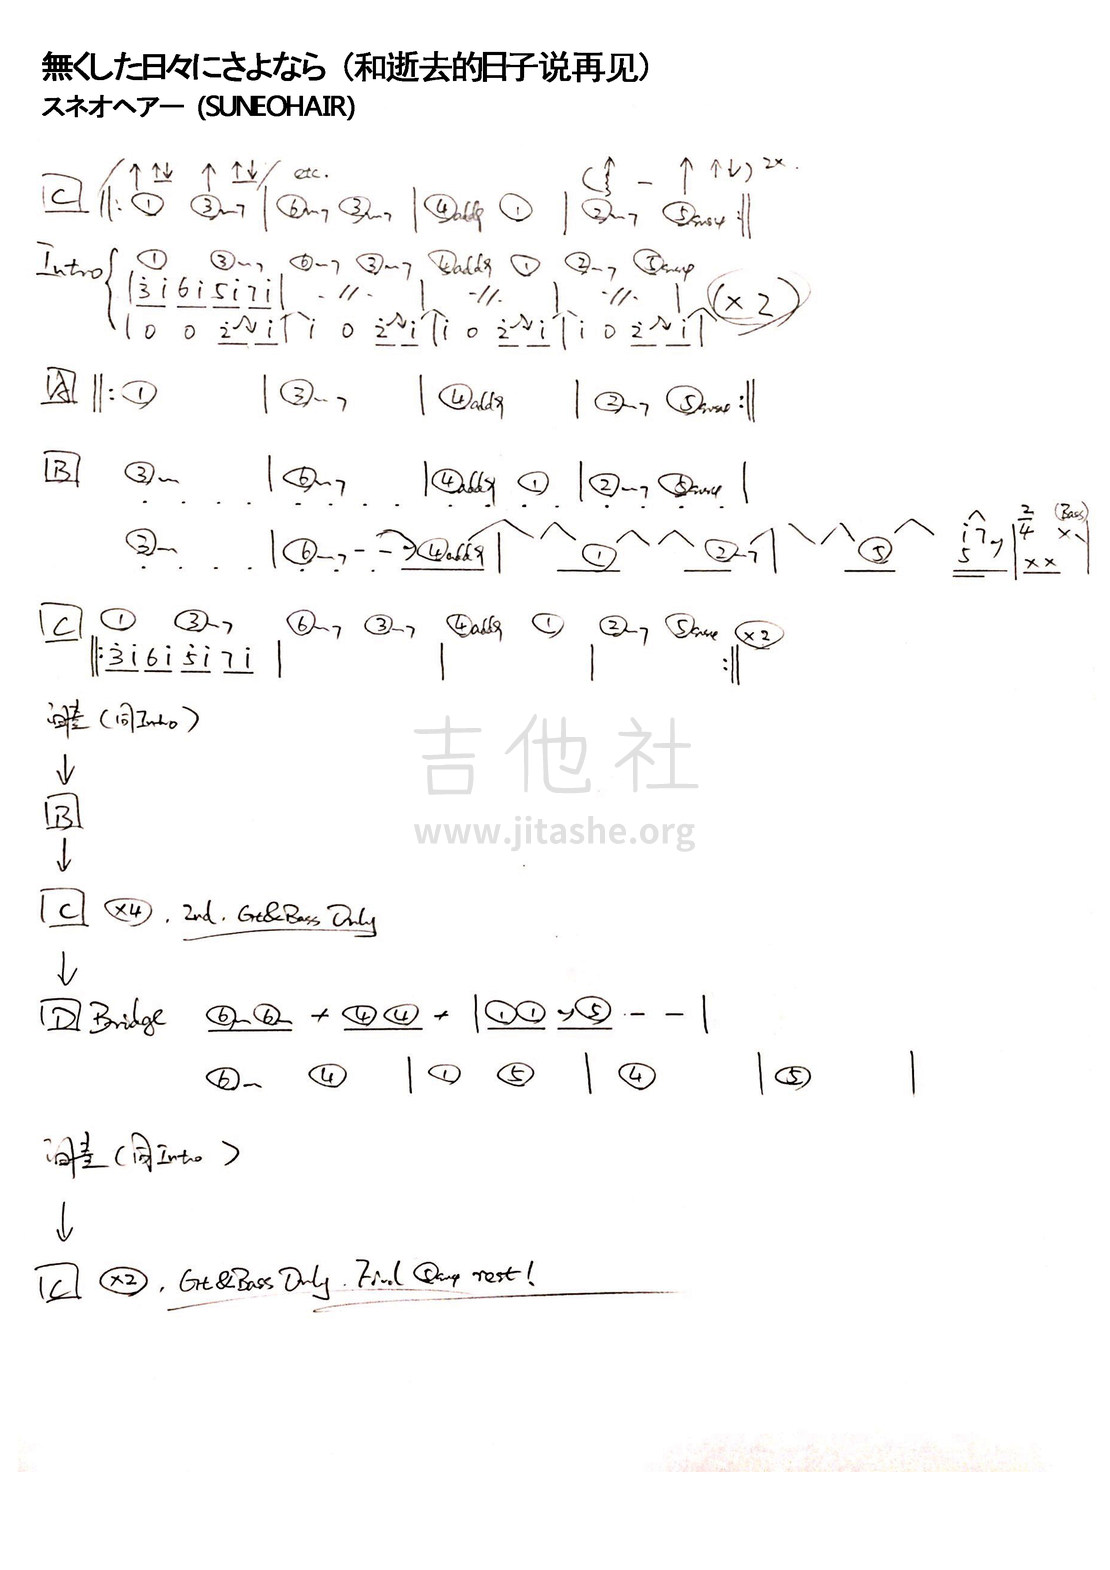 無くした日々にさよなら（和逝去的日子说再见）
スネオヘアー (SUNEOHAIR)
↑ ↑↓ ↑ ↑↓ etc. ( ↑ - ↑ ↑↓) 2x.
C ||: ① ③-7 | ⑥-7 ③-7 | ④add9 ① | ②-7 ⑤sus4 :||
Intro ① ③-7 ⑥-7 ③-7 ④add9 ① ②-7 ⑤sus4
| 3 i 6 i 5 i 7 i | -//- | -//- | -//- | (×2)
| 0 0 2 i | i 0 2 i | i 0 2 i | i 0 2 i |
A ||: ① | ③-7 | ④add9 | ②-7 ⑤sus4 :||
B ③- | ⑥-7 | ④add9 ① | ②-7 ⑤sus4 |
③- | ⑥-7 - - ④add9 | ① ②-7 | ⑤ i 7 5 | 2/4 × × × (Bass) |
C ① ③-7 ⑥-7 ③-7 ④add9 ① ②-7 ⑤sus4 ×2
||: 3 i 6 i 5 i 7 i | | | :||
间奏 (同Intro)
↓
B
↓
C ×4 . 2nd. Gt&Bass Only
↓
D Bridge ⑥-⑥- + ④④ + | ①① ⑤ - - |
⑥- ④ | ① ⑤ | ④ | ⑤ |
间奏 (同Intro)
↓
C ×2 . Gt&Bass Only. rest!
吉他社
www.jitashe.org